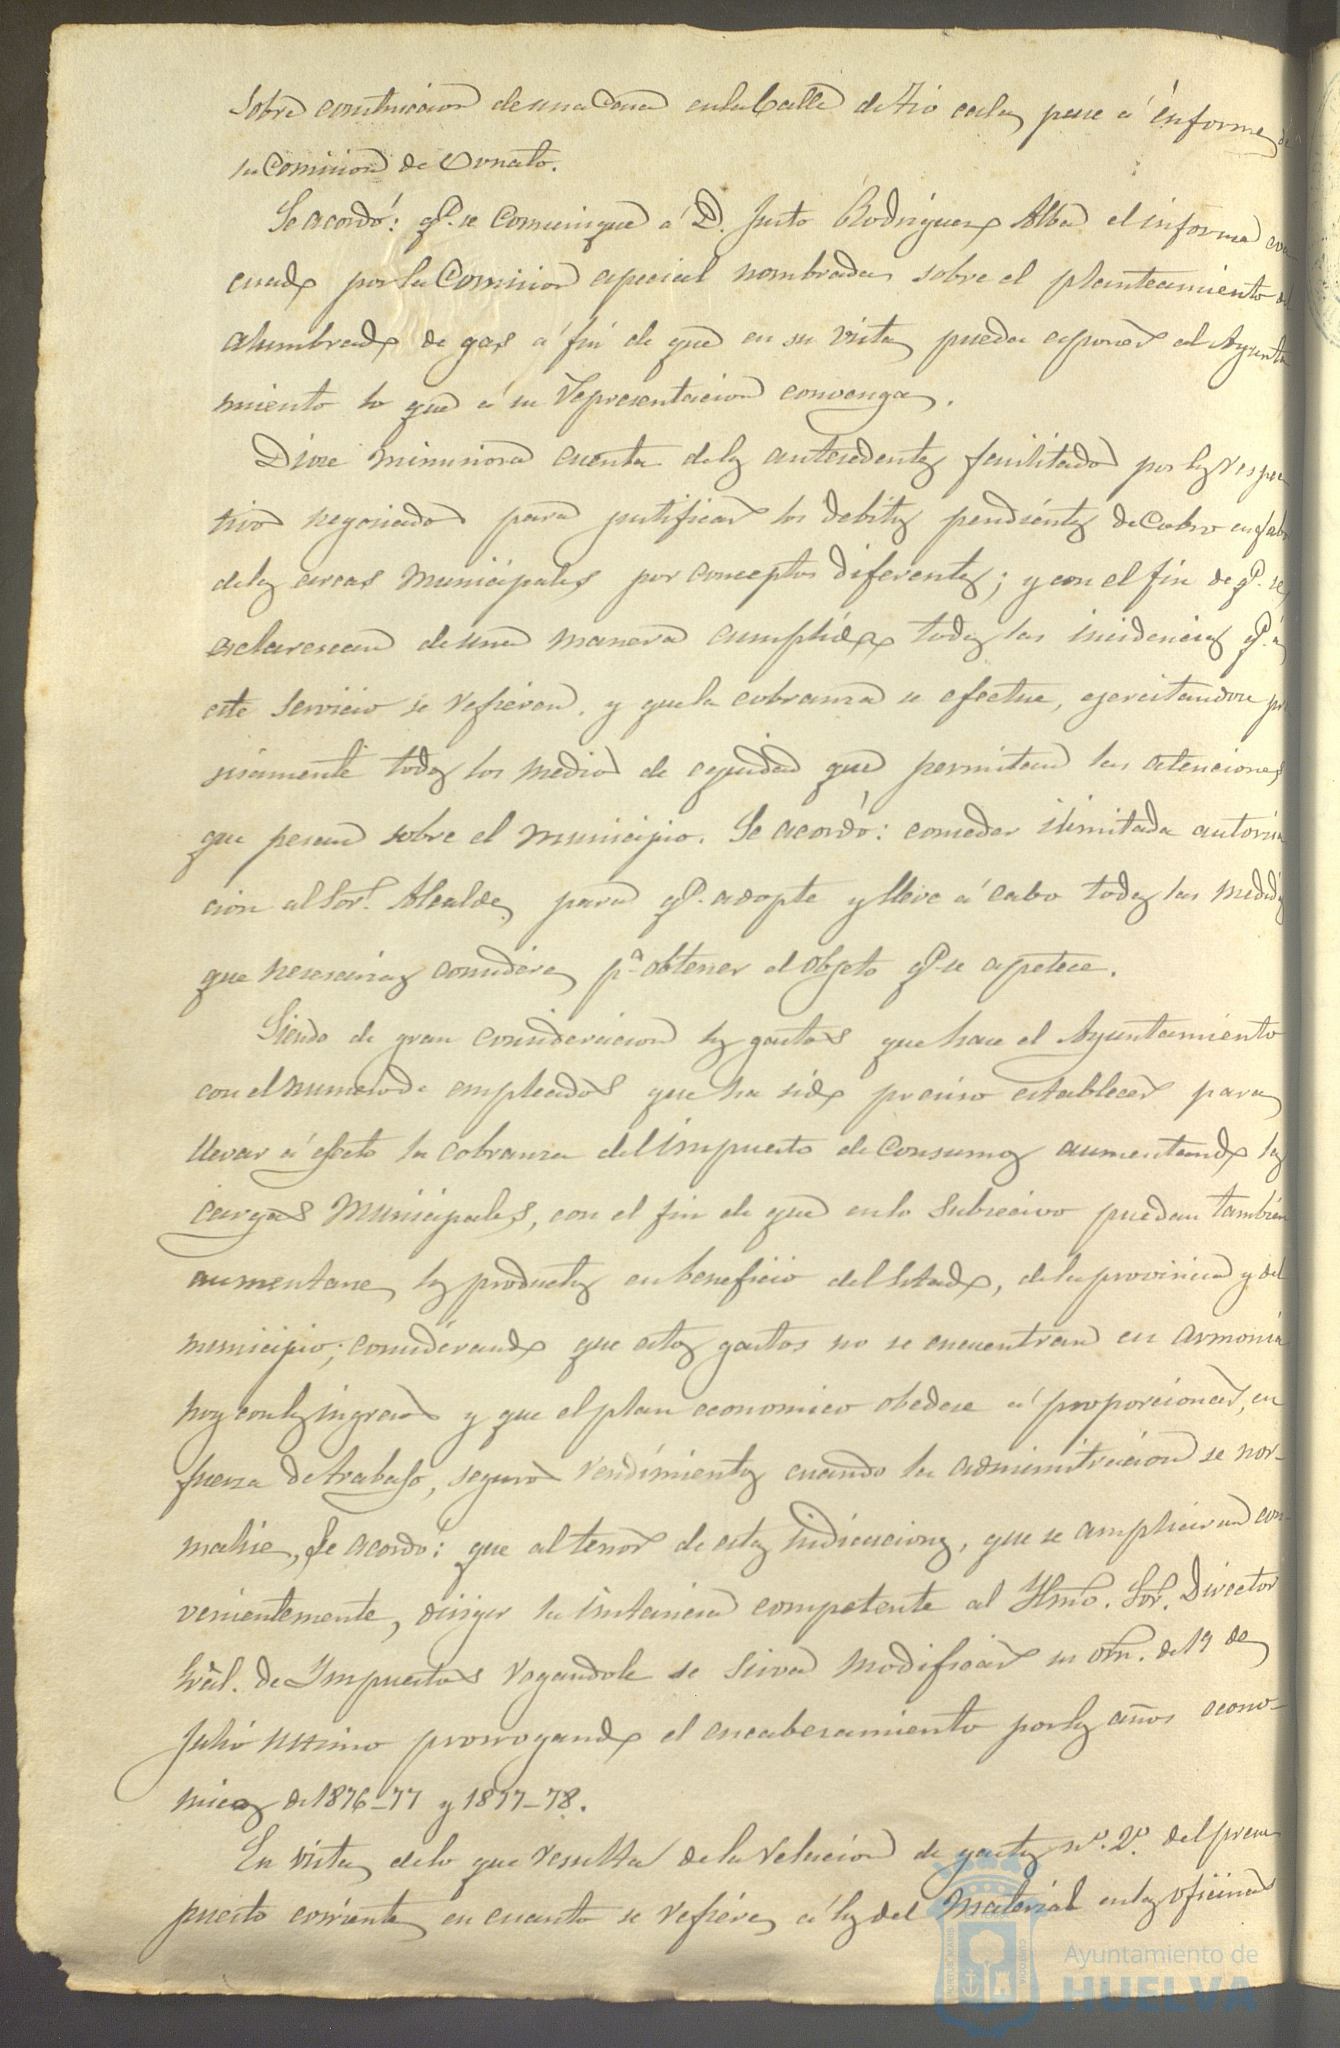 sobre construccion de una Casa en la Calle de Tio cala, pase á informe de
su Comision de Ornato.
Se acordó: qe. se Comunique á D. Justo Rodriguez Alba el informe eva
cuado por la Comision especial nombrada sobre el planteamiento del
alumbrado de gas á fin de que en su vista pueda esponer al Ayunta
miento lo que á su representacion convenga.
Diose minuciosa cuenta de los antesedentes facilitados por los respec
tivos negociados para justificar los debitos pendientes de Cobro en fabor
de las arcas Municipales por conceptos diferentes; y con el fin de qe. se
aclarescan de una manera cumplida todas las incidencias qe. á
este Servicio se refieren, y que la cobranza se efectue, ejercitandose pre
cisamente todos los medios de equidad que permitan las atenciones
que pesan sobre el Municipio. Se acordó: conceder ilimitada autoriza
cion al Sor. Alcalde, para qe. adopte y lleve á cabo todas las medidas
que nesesarias considere, pa. obtener el objeto qe. se apetece.
Siendo de gran consideracion los gastos que hace el Ayuntamiento
con el numero de empleados que ha sido preciso establecer para
llevar á efecto la cobranza del impuesto de Consumos aumentando las
cargas Municipales, con el fin de que en lo subcecivo puedan tambien
aumentarse los productos en beneficio del Estado, de la provincia y del
municipio; considerando que estos gastos no se encuentran en armonia
hoy con los ingresos y que el plan economico obedece á proporcionar, en
fuerza de trabajo, seguros rendimientos cuando la administracion se nor-
malise, Se acordó: que al tenor de estas indicaciones, que se ampliaran con-
venientemente, dirijir la instancia competente al Iltmo. Sor. Director
Gral. de Impuestos rogandole se sirva modificar su orn. de 19 de
Julio ultimo prorrogando el encabesamiento por los años econo-
micos de 1876-77 y 1877-78.
En vista de lo que resulta de la relacion de gastos no. 2o. del presu
puesto corriente en cuanto se refiere á los del Material en las oficinas
Ayuntamiento de
HUELVA